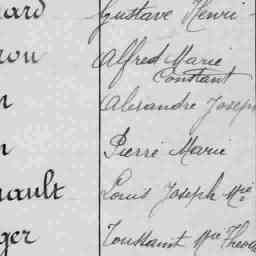 ard Gustave Henri
ron Alfred Marie
Constant
n Alexandre Joseph
n Pierre Marie
nault Louis Joseph Mie
ger Toussaint Mie Théod